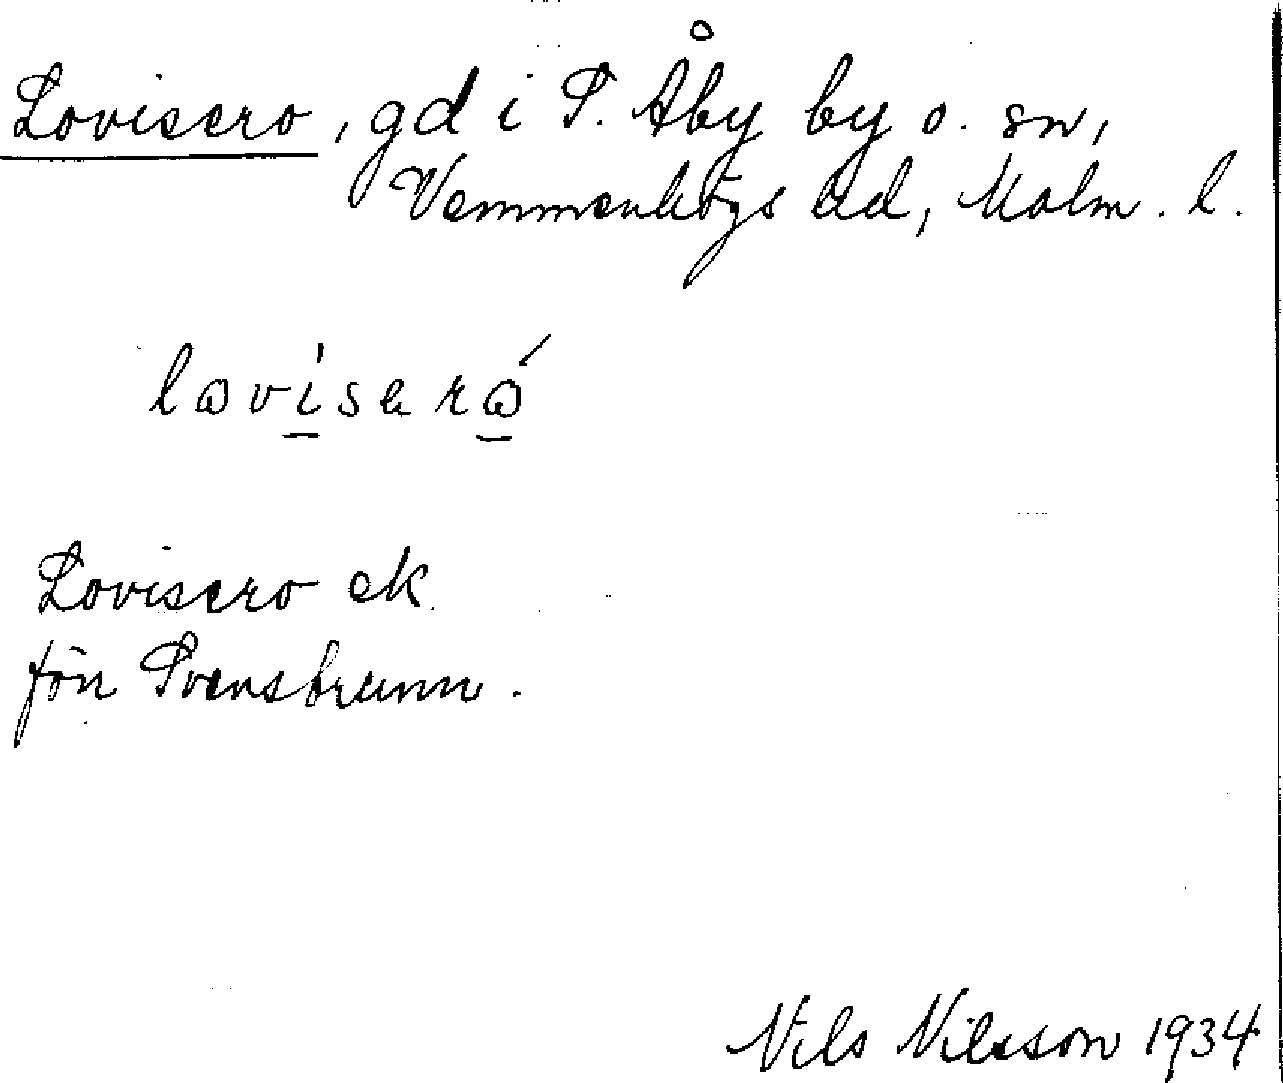 Lovisero, gd i S. Åby by o. sn,
Vemmenhögs hd, Malm. l.
Lovisero ek.
förr Svensbrunn.
Nils Nilsson 1934